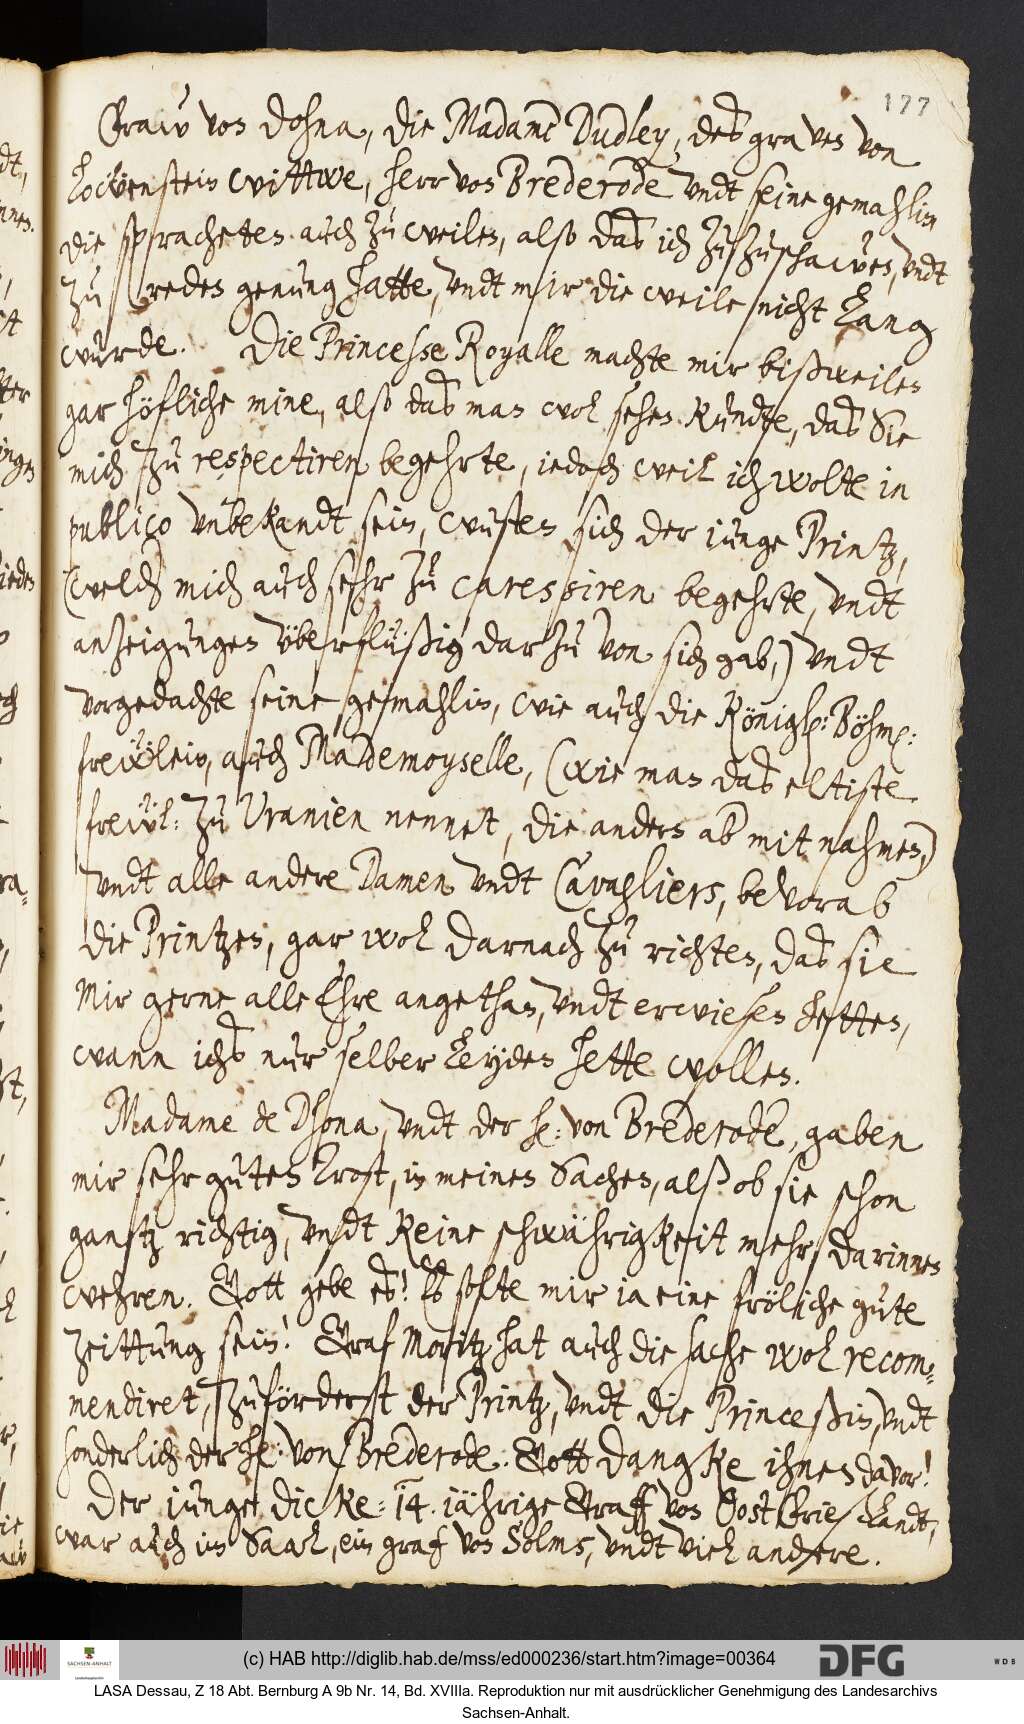 177
Fraw von Dohna, die Madame Dudley, des graven von
Lo&wensteins wittwe, herr von Brederode vndt seine gemahlin
die spracheten auch zu weilen, also das ich zuzuschawen, vndt
zu reden genung hatte, vndt mir die weile nicht lang
wurde. Die Princesse Royalle machte mir bißweilen
gar höfliche mine, also das man wol sehen kundte, das Sie
mich zu respectiren begehrte, iedoch weil ich wolte in
publico vnbekandt sein, wusten sich der iunge Printz,
(welch mich auch sehr zu caressiren begehrte, vndt
anzeigungen vberflüßig darzu von sich gab,) vndt
vorgedachte seine gemahlin, wie auch die Königl: Böhm:
frewlein, auch Mademoyselle, (wie man das eltiste
frewl: zu Uranien nennet, die anders ab mit nahmen,)
vndt alle andere Damen vndt Cavagliers, bevorab
die Printzen, gar wol darnach zu richten, das sie
mir gerne alle Ehre angethan, vndt erwiesen hetten,
wann ichs nur selber leyden hette wollen.
Madame de Dhona, vndt der h: von Brederode, gaben
mir sehr guten Trost, in meinen Sachen, alß ob sie schon
gantz richtig, vndt keine schwährigkeit mehr, darinnen
wehren. Gott gebe es! Es solte mir ia eine fröliche gute
zeittung sein! Graf Moritz hat auch die sache wol recom-
mendiret, zuförderst der Printz, vndt die Princeßin, vndt
sonderlich der h: von Brederode. Gott dangke ihnen davor!
Der iunge, dicke: 14. iährige Graff von OostFrießlandt,
war auch im Saal, ein graf von Solms, vndt viel andere.
(c) HAB http://diglib.hab.de/mss/ed000236/start.htm?image=00364
SACHSEN-ANHALT
DFG
WDB
LASA Dessau, Z 18 Abt. Bernburg A 9b Nr. 14, Bd. XVIIIa. Reproduktion nur mit ausdrücklicher Genehmigung des Landesarchivs
Sachsen-Anhalt.